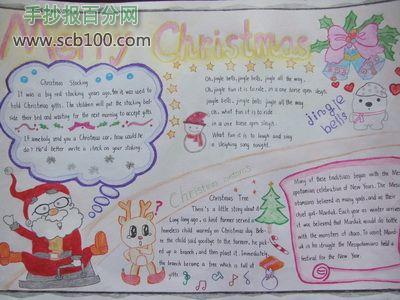 手抄报百分网
www.scb100.com
Merry Christmas
Christmas Stocking
It was a big red stocking years ago. Yes it was used to
hold Christmas gifts. The children will put the stocking bes-
ide their bed and waiting for the next morning to accept gifts.
If somebody send you a Christmas car, how could he
do? He'd better write a check on your stoking.
Oh, jingle bells, jingle bells, jingle all the way,
Oh, what fun it is to ride, in a one horse open sleigh.
jingle bells, jingle bells, jingle all the way,
oh, what fun it is to ride
in a one horse open sleigh.
What fun it is to laugh and sing
a sleighing song tonight.
jingle
bells
Christmas customs
Christmas Tree
There's a little story about it
Long long ago, a kind farmer served a
homeless child warmly on Christmas day. Befo-
re the child said goodbye to the farmer, he pick-
ed up a branch, and then plant it. Immediately
the branch become a tree which is full of
gifts.
Many of these traditions began with the Mes-
opotamian celebration of New Years. The Mes-
otamians believed in many gods, and as their
chief god - Marduk. Each year as winter arrived
it was believed that Marduk would do battle
with the monsters of chaos. To assist Mardu-
uk in his struggle the Mesopotamians held a
festival for the New Year.